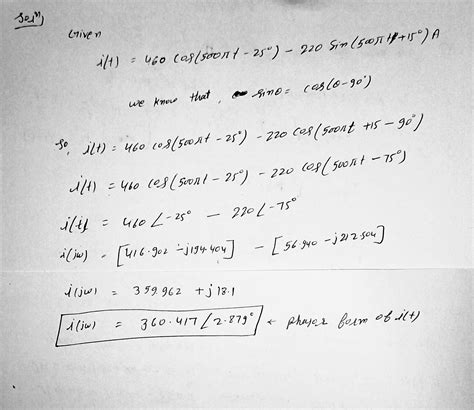 Soln)
Given
i(t) = 460 cos(500πt - 25°) - 220 sin(500πt + 15°) A
we know that, sinθ = cos(θ-90°)
So, i(t) = 460 cos(500πt - 25°) - 220 cos(500πt + 15 - 90°)
i(t) = 460 cos(500πt - 25°) - 220 cos(500πt - 75°)
i(t) = 460 ∠-25° - 220 ∠-75°
i(jω) = [416.902 - j194.404] - [56.940 - j212.504]
i(jω) = 359.962 + j18.1
i(jω) = 360.417 ∠2.879° ← phasor form of i(t)